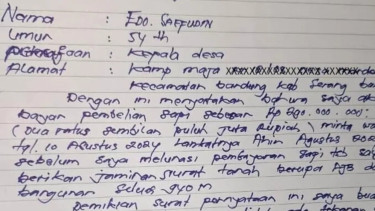 Nama : EDO. SAEFUDIN
Umur : 54 th
: Kepala desa
Alamat : Kamp maja
Kecamatan bandung Kab Serang
Dengan ini menyatakan bahwa saya
bayar pembelian sapi sebesar Rp 290.000.000;
(Dua ratus sembilan puluh Juta Rupiah) minta
tgl. 10 Agustus 2024
sebelum saya melunasi pembayaran sapi tsb
berikan jaminan surat tanah berupa AJB
bangunan Seluas 940 m
Demikian surat pernyataan ini saya